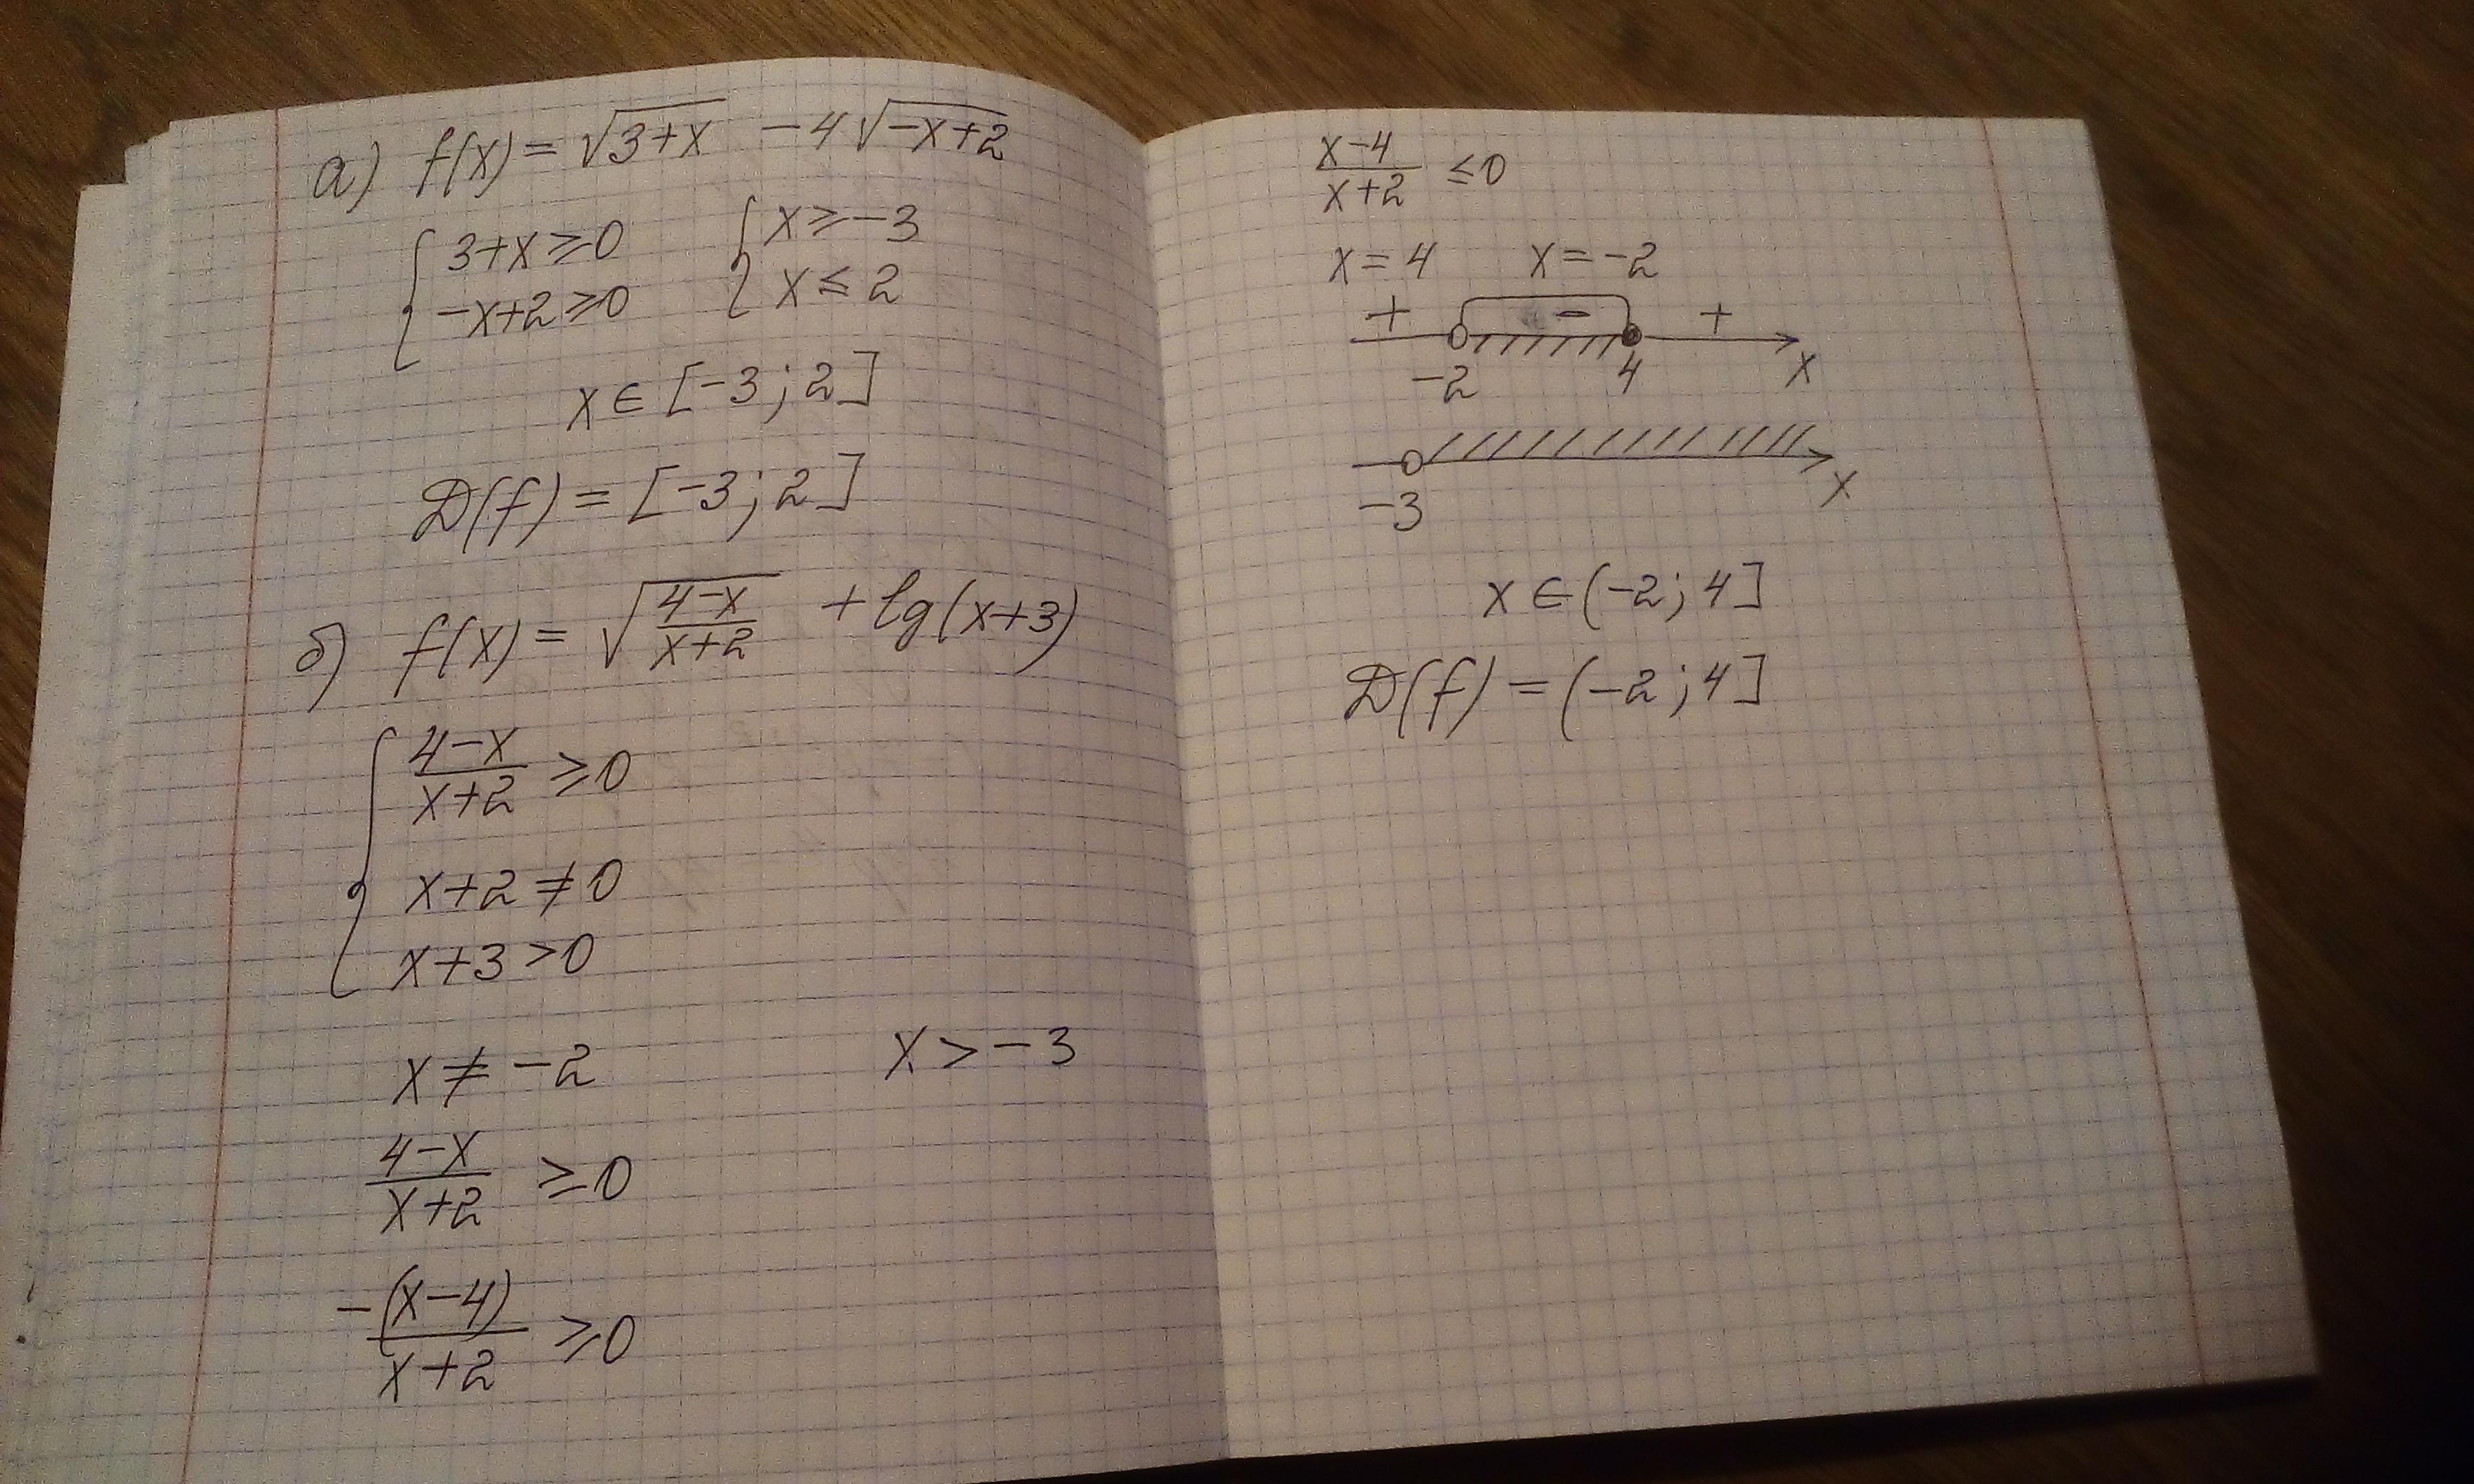 а) f(x) = √(3+x) − 4√(−x+2)
{ 3+x ≥ 0 { x ≥ −3
−x+2 ≥ 0 x ≤ 2
x ∈ [−3; 2]
D(f) = [−3; 2]
б) f(x) = √((4−x)/(x+2)) + lg(x+3)
{ (4−x)/(x+2) ≥ 0
x+2 ≠ 0
x+3 > 0
x ≠ −2 x > −3
(4−x)/(x+2) ≥ 0
−(x−4)/(x+2) ≥ 0
(x−4)/(x+2) ≤ 0
x = 4 x = −2
+ − +
−2 4 x
x
−3
x ∈ (−2; 4]
D(f) = (−2; 4]